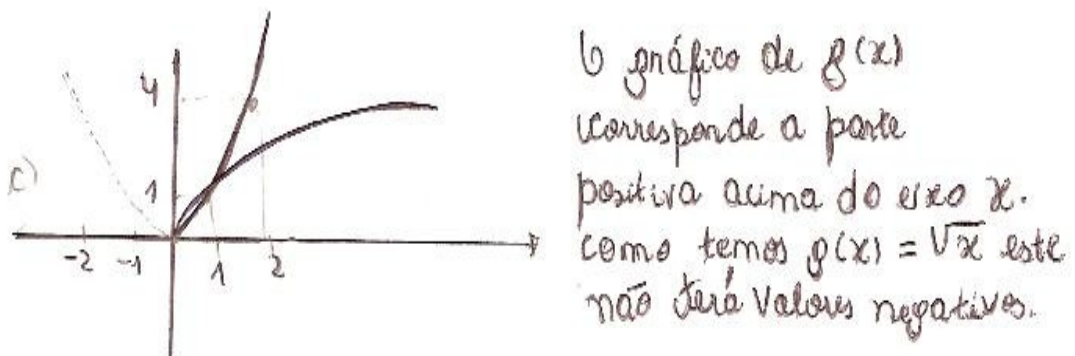 c)
4
1
-2 -1 1 2
O gráfico de g(x)
corresponde a parte
positiva acima do eixo x.
como temos g(x) = √x este
não terá valores negativos.